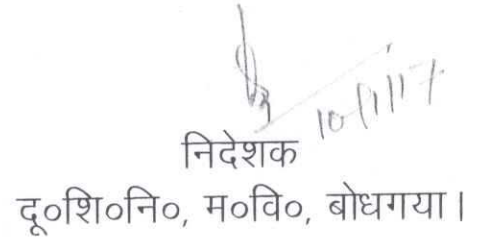 10/1/17
निदेशक
दू०शि०नि०, म०वि०, बोधगया।